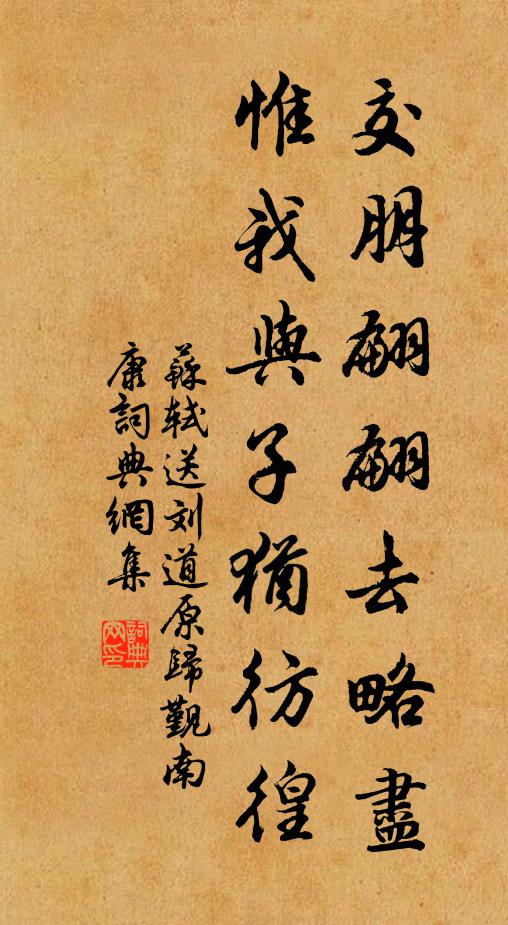 交朋翩翩去略盡
惟我與子猶彷徨
蘇軾送刘道原歸觐南
康詞典網集
詞典
网印